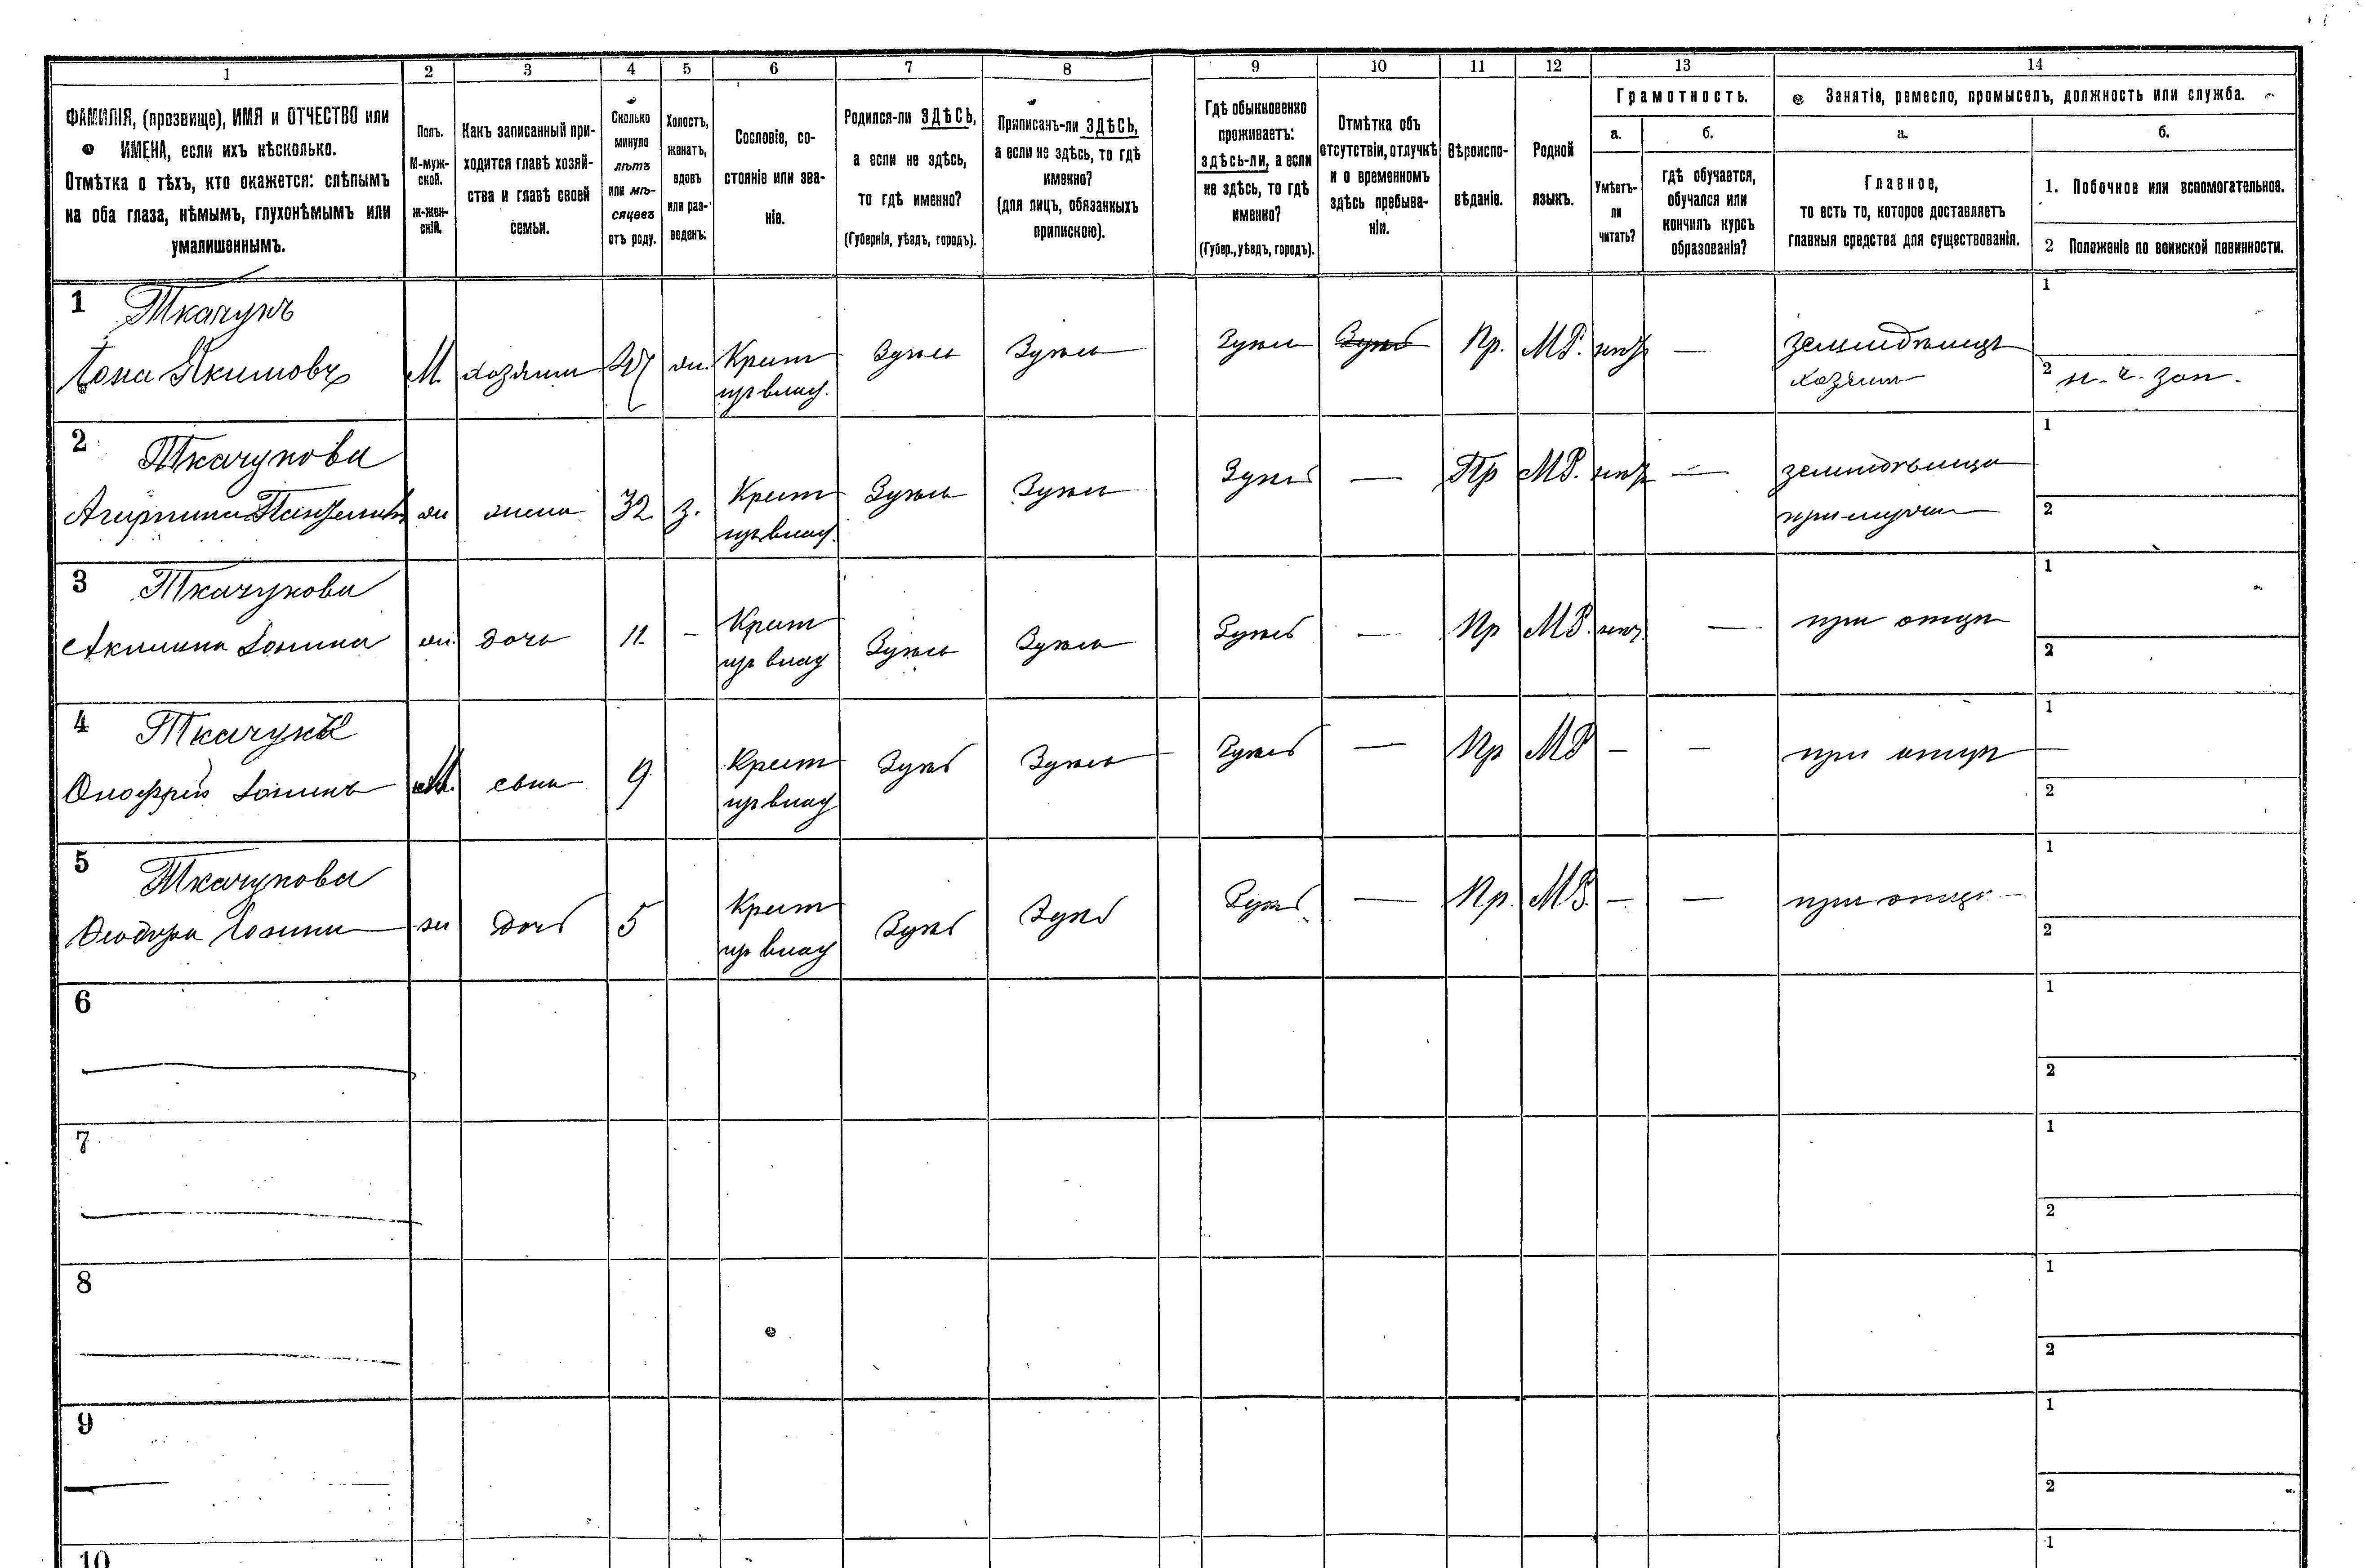 1 2 3 4 5 6 7 8 9 10 11 12 13 14
ФАМИЛІЯ, (прозвище), ИМЯ и ОТЧЕСТВО или
ИМЕНА, если ихъ нѣсколько.
Отмѣтка о тѣхъ, кто окажется: слѣпымъ
на оба глаза, нѣмымъ, глухонѣмымъ или
умалишеннымъ.
Полъ.
М-муж-
ской.
ж-жен-
скій.
Какъ записанный при-
ходится главѣ хозяй-
ства и главѣ своей
семьи.
Сколько
минуло
лѣтъ
или мѣ-
сяцевъ
отъ роду.
Холостъ,
женатъ,
вдовъ
или раз-
веденъ.
Сословіе, со-
стояніе или зва-
ніе.
Родился-ли ЗДѢСЬ,
а если не здѣсь,
то гдѣ именно?
(Губернія, уѣздъ, городъ).
Приписанъ-ли ЗДѢСЬ,
а если не здѣсь, то гдѣ
именно?
(для лицъ, обязанныхъ
припискою).
Гдѣ обыкновенно
проживаетъ:
здѣсь-ли, а если
не здѣсь, то гдѣ
именно?
(Губер., уѣздъ, городъ).
Отмѣтка объ
отсутствіи, отлучкѣ
и о временномъ
здѣсь пребыва-
ніи.
Вѣроиспо-
вѣданіе.
Родной
языкъ.
Грамотность.
а.
Умѣетъ-
ли
читать?
б.
гдѣ обучается,
обучался или
кончилъ курсъ
образованія?
Занятіе, ремесло, промыселъ, должность или служба.
а.
Главное,
то есть то, которое доставляетъ
главныя средства для существованія.
б.
1. Побочное или вспомогательное.
2 Положеніе по воинской повинности.
1 Ткачукъ
Іона Якимовъ М хозяинъ Крест Здѣсь Здѣсь Здѣсь Здѣсь Пр. МР. нѣтъ — земледѣлецъ
из влад. хозяинъ
1
2 н. ч. зап.
2 Ткачукова
Агрипина ж жена 32 з. Крест Здѣсь Здѣсь Здѣсь — Пр МР. нѣтъ — земледѣлица
из влад. при мужѣ
1
2
3 Ткачукова
Акилина Іонина ж дочь 11 - Крест Здѣсь Здѣсь Здѣсь — Пр МР. нѣтъ — при отцѣ
из влад
1
2
4 Ткачукъ
Онофрій Іонинъ М. сынъ 9 Крест Здѣсь Здѣсь Здѣсь — Пр МР — — при отцѣ
из влад
1
2
5 Ткачукова
Феодора Іонина ж дочь 5 Крест Здѣсь Здѣсь Здѣсь — Пр. МР. — — при отцѣ
из влад
1
2
6
1
2
7
1
2
8
1
2
9
1
2
10
1